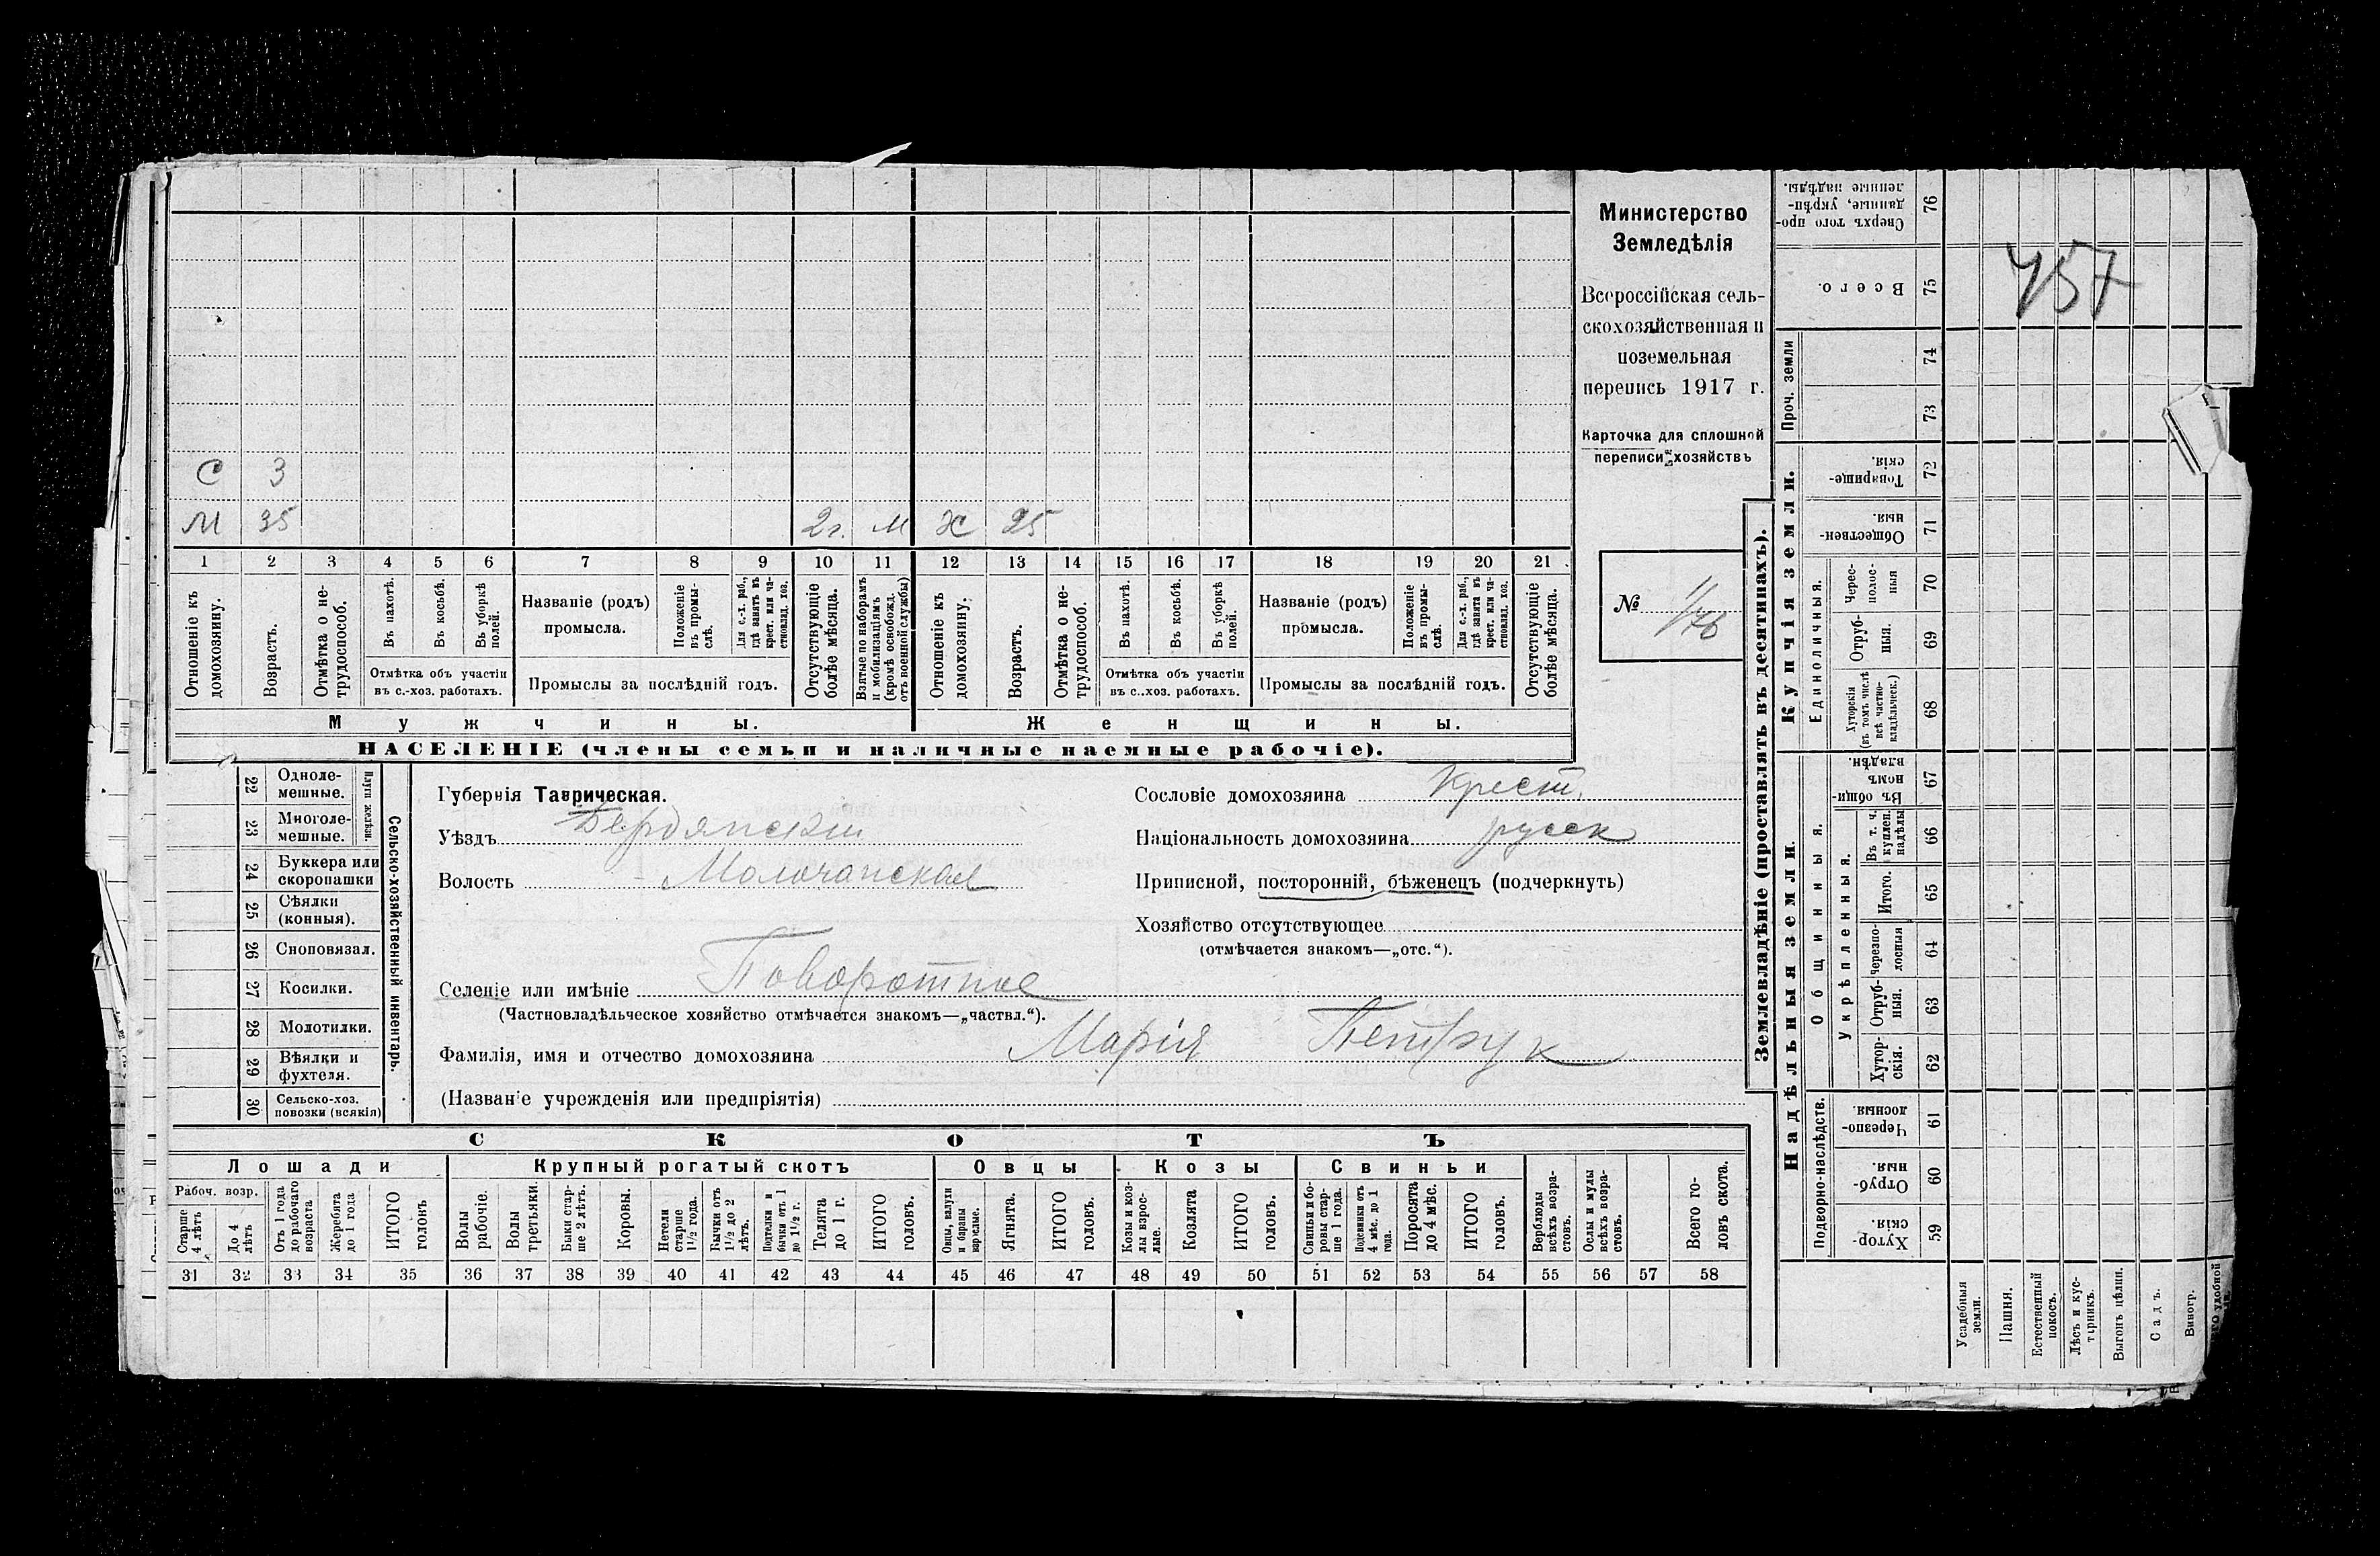 Министерство
Земледѣлія
Всероссійская сель-
скохозяйственная и
поземельная
перепись 1917 г.
Карточка для сплошной
переписи хозяйствъ
№ 1/76
457
С 3
М 35 2г. м Ж 25
1 2 3 4 5 6 7 8 9 10 11 12 13 14 15 16 17 18 19 20 21
Отношеніе къ домохозяину.
Возрастъ.
Отмѣтка о не-трудоспособ.
Въ пахотѣ.
Въ косьбѣ.
Въ уборкѣ полей.
Отмѣтка объ участіи
въ с.-хоз. работахъ.
Названіе (родъ)
промысла.
Положеніе въ промы-слѣ.
Для с.-х. раб., гдѣ занятъ въ крест. или ча-стновлад. хоз.
Промыслы за послѣдній годъ.
Отсутствующіе болѣе мѣсяца.
Взятые по наборамъ и мобилизаціямъ (кромѣ освобожд. отъ военной службы)
Отношеніе къ домохозяину.
Возрастъ.
Отмѣтка о не-трудоспособ.
Въ пахотѣ.
Въ косьбѣ.
Въ уборкѣ полей.
Отмѣтка объ участіи
въ с.-хоз. работахъ.
Названіе (родъ)
промысла.
Положеніе въ промы-слѣ.
Для с.-х. раб., гдѣ занята въ крест. или ча-стновлад. хоз.
Промыслы за послѣдній годъ.
Отсутствующіе болѣе мѣсяца.
Мужчины.
Женщины.
НАСЕЛЕНІЕ (члены семьи и наличные наемные рабочіе).
Сельско-хозяйственный инвентарь.
Плуги желѣзн.
22 Одноле-мешные.
23 Многоле-мешные.
24 Буккера или скоропашки
25 Сѣялки (конныя).
26 Сноповязал.
27 Косилки.
28 Молотилки.
29 Вѣялки и фухтеля.
30 Сельско-хоз. повозки (всякія)
Губернія Таврическая.
Уѣздъ Бердянскій
Волость Молочанская
Селеніе или имѣніе Поворотное
(Частновладѣльческое хозяйство отмѣчается знакомъ—„частвл.“).
Фамилія, имя и отчество домохозяина Марія Петрук
(Названіе учрежденія или предпріятія)
Сословіе домохозяина Крест.
Національность домохозяина русск
Приписной, посторонній, бѣженецъ (подчеркнуть)
Хозяйство отсутствующее
(отмѣчается знакомъ—„отс.“).
СКОТЪ
Лошади
Крупный рогатый скотъ
Овцы
Козы
Свиньи
Рабоч. возр.
Старше 4 лѣтъ
До 4 лѣтъ
Отъ 1 года до рабочаго возраста
Жеребята до 1 года
ИТОГО головъ
Волы рабочіе.
Волы третьяки.
Быки стар-ше 2 лѣтъ.
Коровы.
Нетели старше 1½ года.
Бычки отъ 1½ до 2 лѣтъ.
Подтелки и бычки отъ 1 до 1½ г.
Телята до 1 г.
ИТОГО головъ.
Овцы, валухи и бараны взрослые.
Ягнята.
ИТОГО головъ.
Козы и коз-лы взрос-лые.
Козлята
ИТОГО головъ.
Свиньи и бо-ровы стар-ше 1 года.
Подсвинки отъ 4 мѣс. до 1 года.
Поросята до 4 мѣс.
ИТОГО головъ.
Верблюды всѣхъ возра-стовъ.
Ослы и мулы всѣхъ возра-стовъ.
Всего го-ловъ скота.
31 32 33 34 35 36 37 38 39 40 41 42 43 44 45 46 47 48 49 50 51 52 53 54 55 56 57 58
Землевладѣніе (проставлять въ десятинахъ).
Сверхъ того про-данные, укрѣп-ленные надѣлы. 76
Всего. 75
Проч. земли
74
73
Купчія земли.
Товарище-скія. 72
Обществен-ныя. 71
Единоличныя.
Черес-полос-ныя 70
Отруб-ныя. 69
Хуторскія (въ томъ числѣ всѣ частно-владѣльческ.) 68
Надѣльныя земли.
Общинныя.
Въ общи-номъ владѣн. 67
Укрѣпленныя.
Въ т. ч. куплен. надѣлы 66
Итого. 65
Черезпо-лосныя 64
Отруб-ныя. 63
Хутор-скія. 62
Подворно-наслѣдств.
Черезпо-лосныя. 61
Отруб-ныя. 60
Хутор-скія. 59
Усадебныя земли.
Пашня.
Естественный покосъ.
Лѣсъ и кус-тарникъ.
Выгонъ цѣлин.
Садъ.
Виногр.
удобной